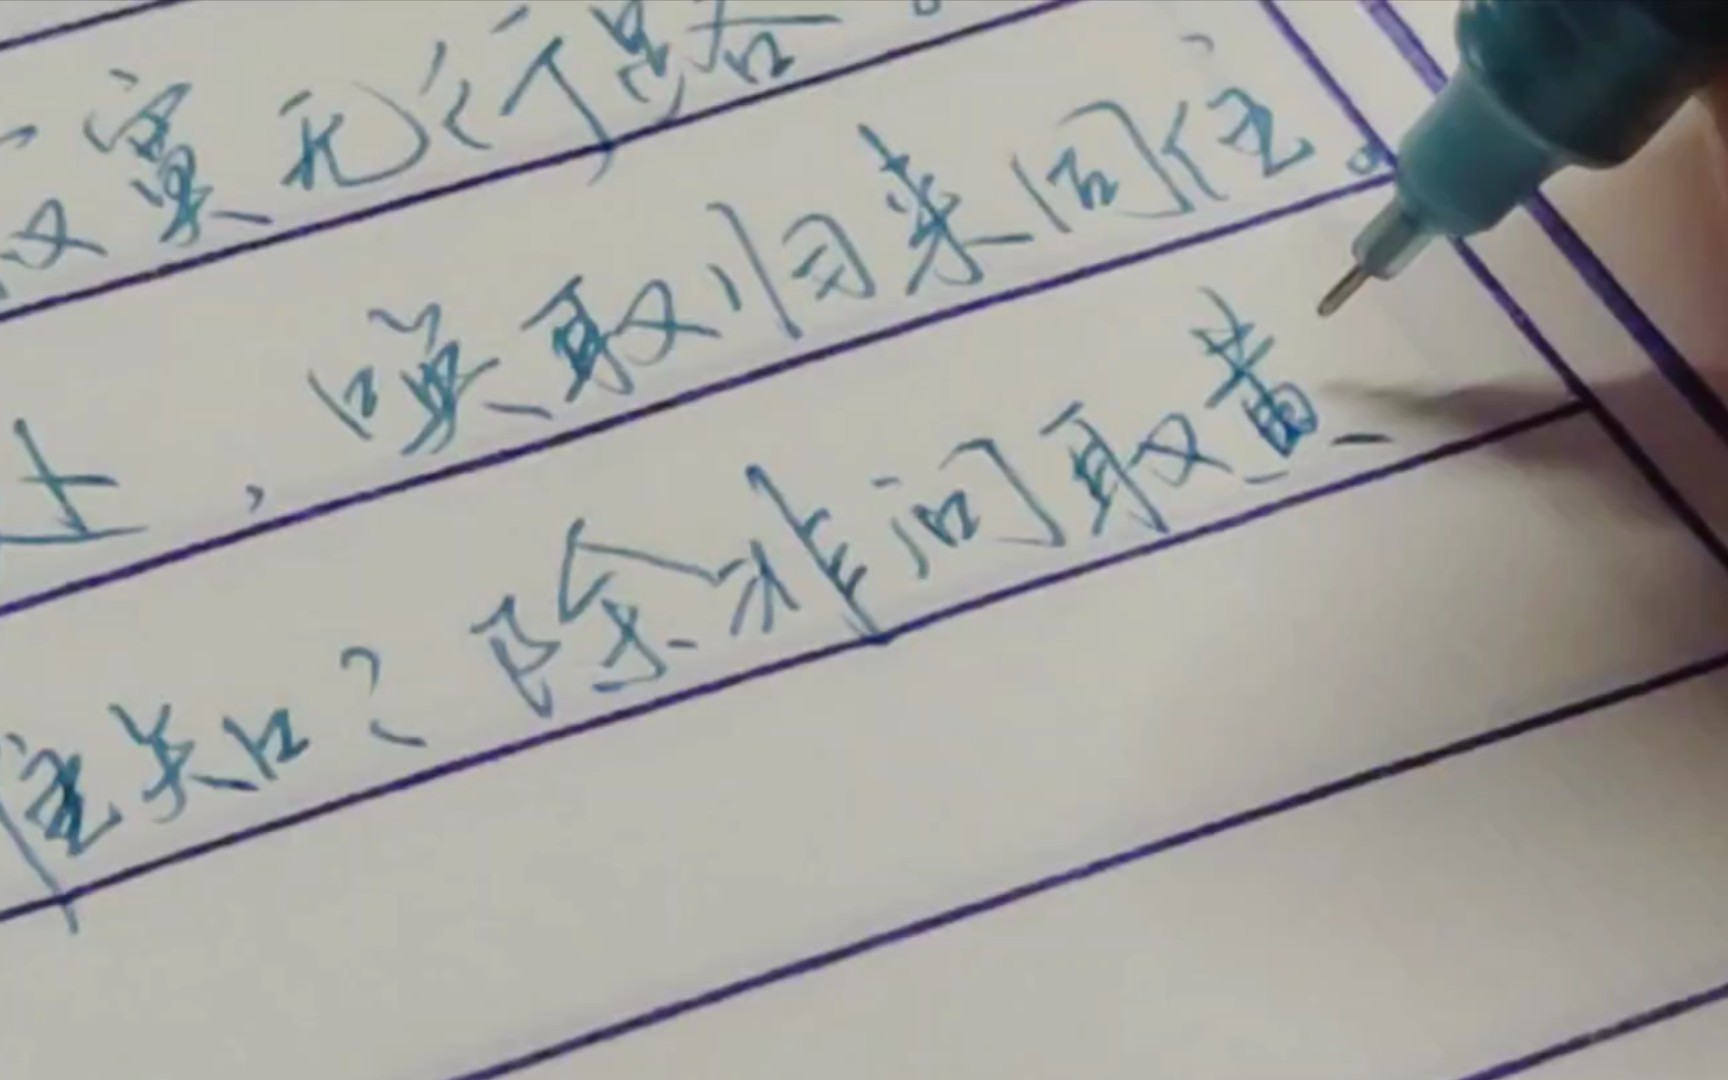 寂寞无行路。
，唤取归来同住。
谁知？除非问取黄